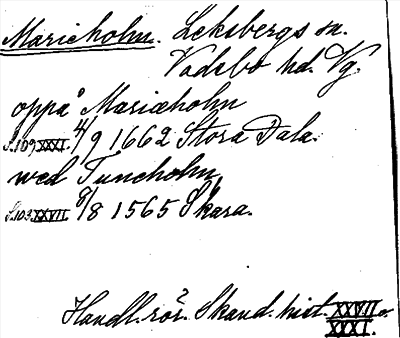 Marieholm. Leksbergs sn.
Vadsbo hd. Vg.
oppå Mariæholm
S.109 XXXI. 4/9 1662 Stora Dala.
wed Tuneholm,
S.103 XXVII. 8/8 1565 Skara.
Handl. rör. Skand. hist. XXVII o.
XXXI.